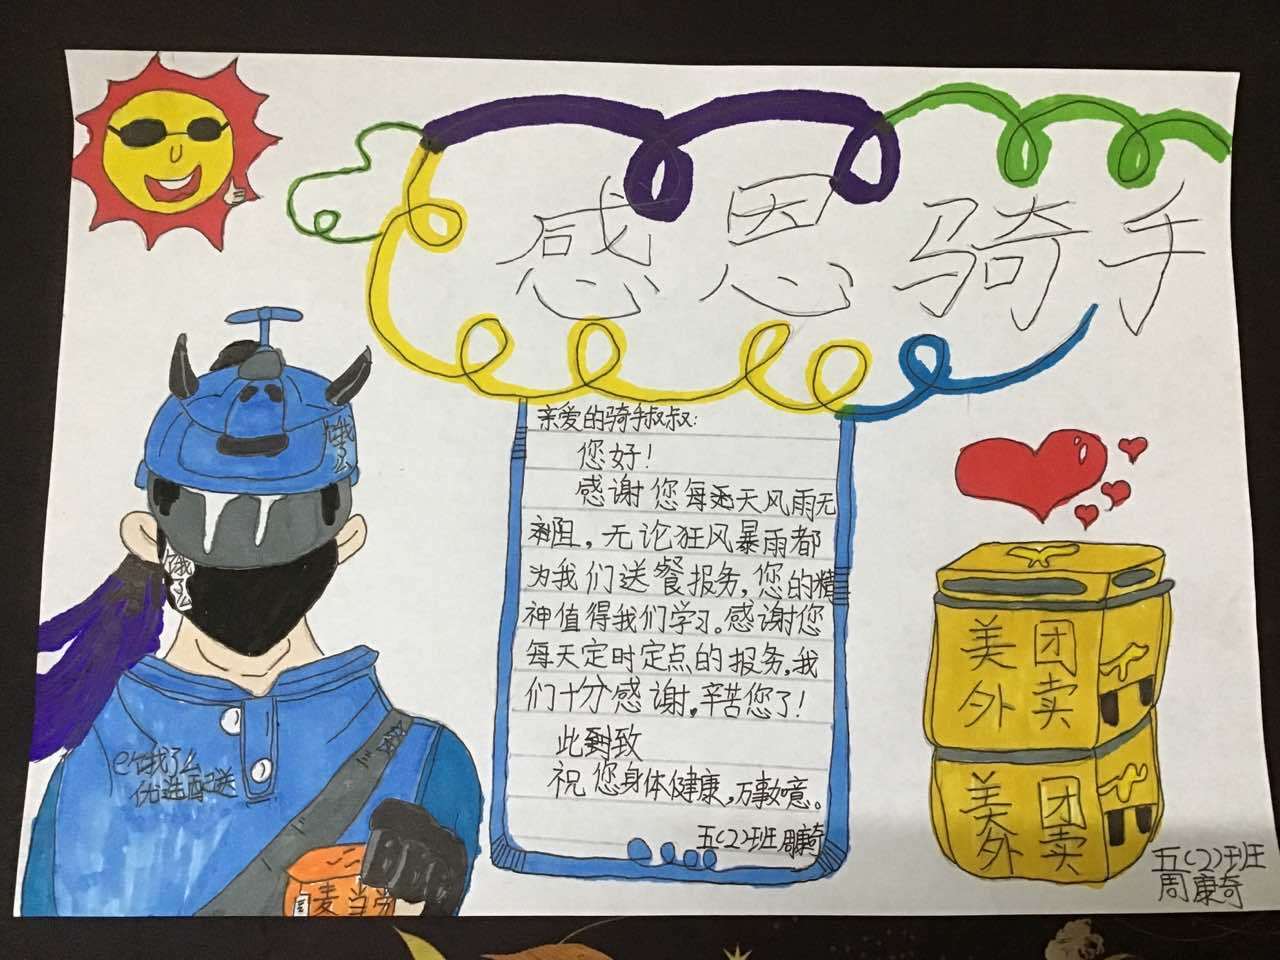 感恩骑手
亲爱的骑手叔叔：
您好！
感谢您每天风雨无
阻，无论狂风暴雨都
为我们送餐报务，您的精
神值得我们学习。感谢您
每天定时定点的报务，我
们十分感谢，辛苦您了！
此致
祝您身体健康，万事如意。
五(2)班 周康奇
饿了么
饿了么
e饿了么
优选配送
麦当劳
美团
外卖
美团
外卖
五(2)班
周康奇